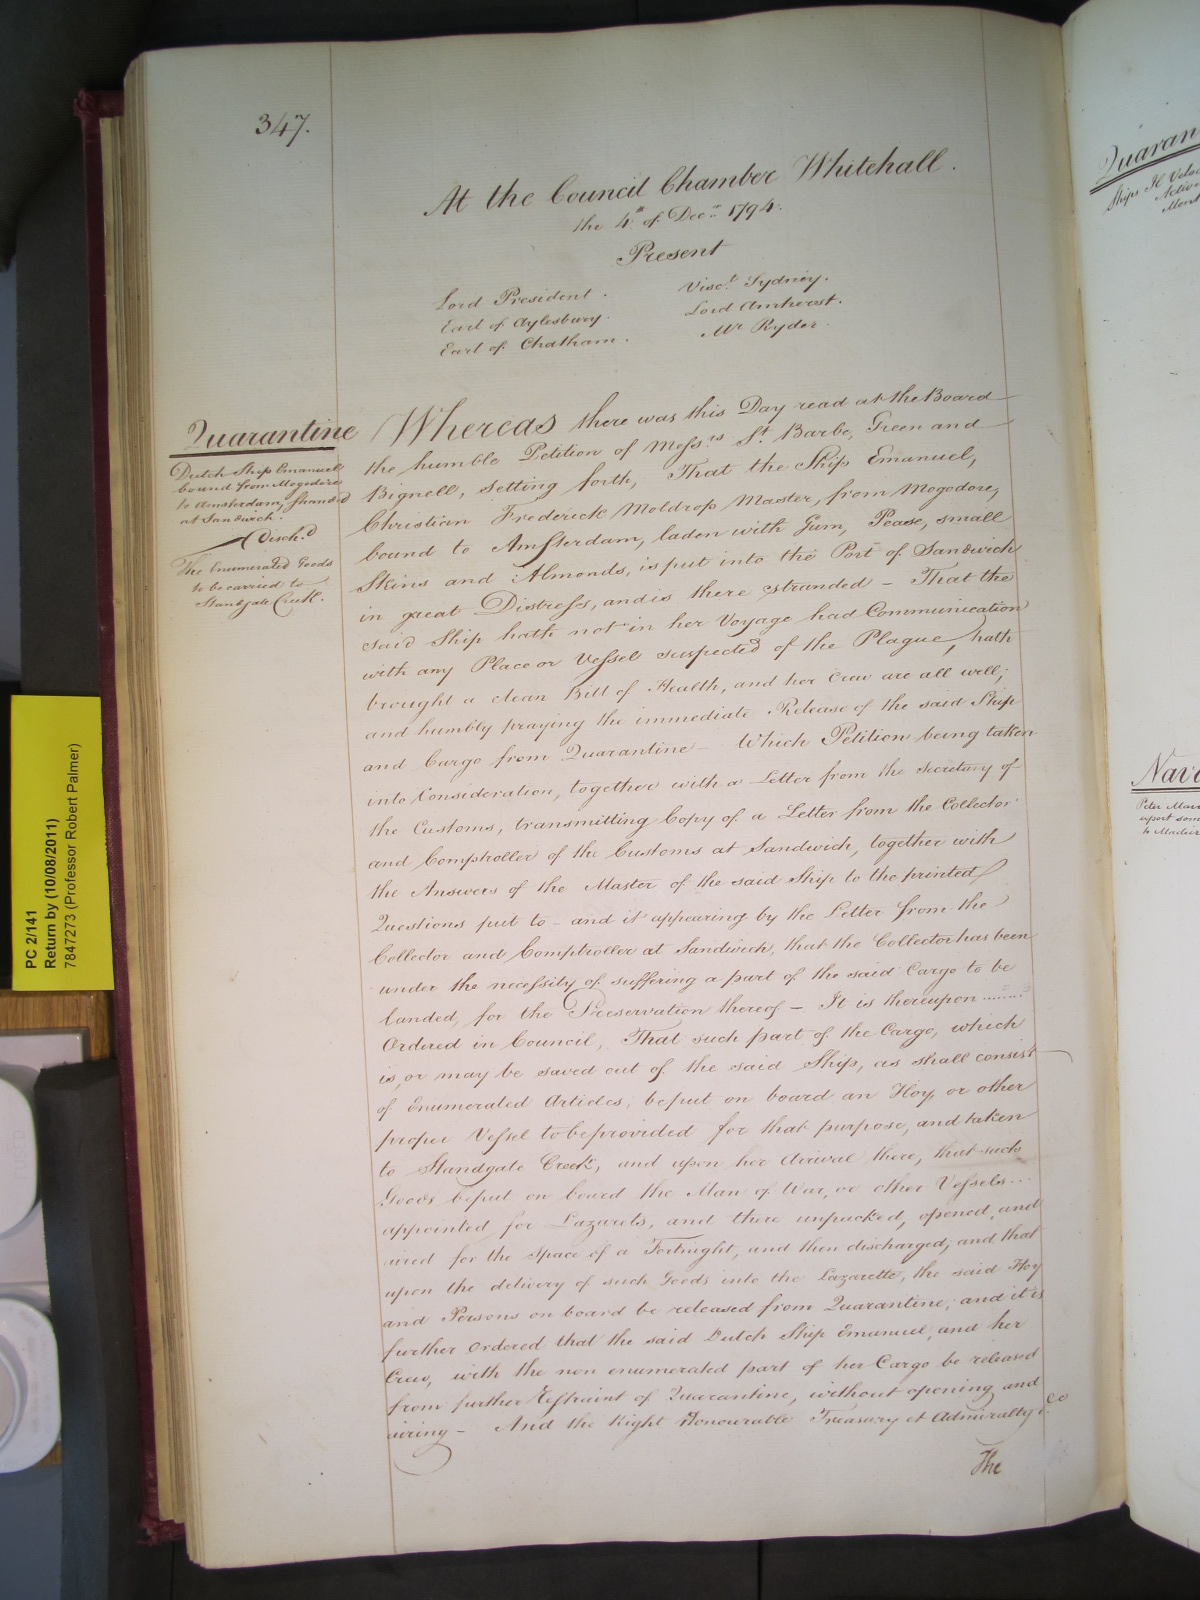 347.
At the Council Chamber Whitehall.
the 4th of Decr. 1794.
Present
Lord President.
Earl of Aylesbury.
Earl of Chatham.
Visct. Sydney.
Lord Amherst.
Mr Ryder.
Quarantine
Dutch Ship Emanuel
bound from Mogodore
to Amsterdam, stranded
at Sandwich.
Disch.d
The Enumerated Goods
to be carried to
Standgate Creek.
Whereas there was this Day read at the Board
the humble Petition of Messrs. St. Barbe, Green and
Bignell, setting forth, That the Ship Emanuel,
Christian Frederick Moldrop Master, from Mogodore,
bound to Amsterdam, laden with Gum, Pease, small
Skins and Almonds, is put into the Port of Sandwich
in great Distress, and is there stranded – That the
said Ship hath not in her Voyage had Communication
with any Place or Vessel suspected of the Plague, hath
brought a clean Bill of Health, and her Crew are all well;
and humbly praying the immediate Release of the said Ship
and Cargo from Quarantine – Which Petition being taken
into Consideration, together with a Letter from the Secretary of
the Customs, transmitting Copy of a Letter from the Collector
and Comptroller of the Customs at Sandwich, together with
the Answers of the Master of the said Ship to the printed
Questions put to – and it appearing by the Letter from the
Collector and Comptroller at Sandwich, that the Collector has been
under the necessity of suffering a part of the said Cargo to be
landed, for the Preservation thereof – It is thereupon
Ordered in Council, That such part of the Cargo, which
is, or may be saved out of the said Ship, as shall consist
of Enumerated Articles, be put on board an Hoy, or other
proper Vessel to be provided for that purpose, and taken
to Standgate Creek, and upon her Arrival there, that such
Goods be put on board the Man of War, or other Vessels...
appointed for Lazarets, and there unpacked, opened, and
aired for the space of a Fortnight, and then discharged; and that
upon the delivery of such Goods into the Lazarette, the said Hoy
and Persons on board be released from Quarantine; and it is
further Ordered that the said Dutch Ship Emanuel, and her
Crew, with the non enumerated part of her Cargo be released
from further Restraint of Quarantine, without opening and
airing – And the Right Honourable Treasury et Admiralty &ca
The
PC 2/141
Return by (10/08/2011)
7847273 (Professor Robert Palmer)
Quaran
Ships Il Velo
Nava
upset som
to Madeir